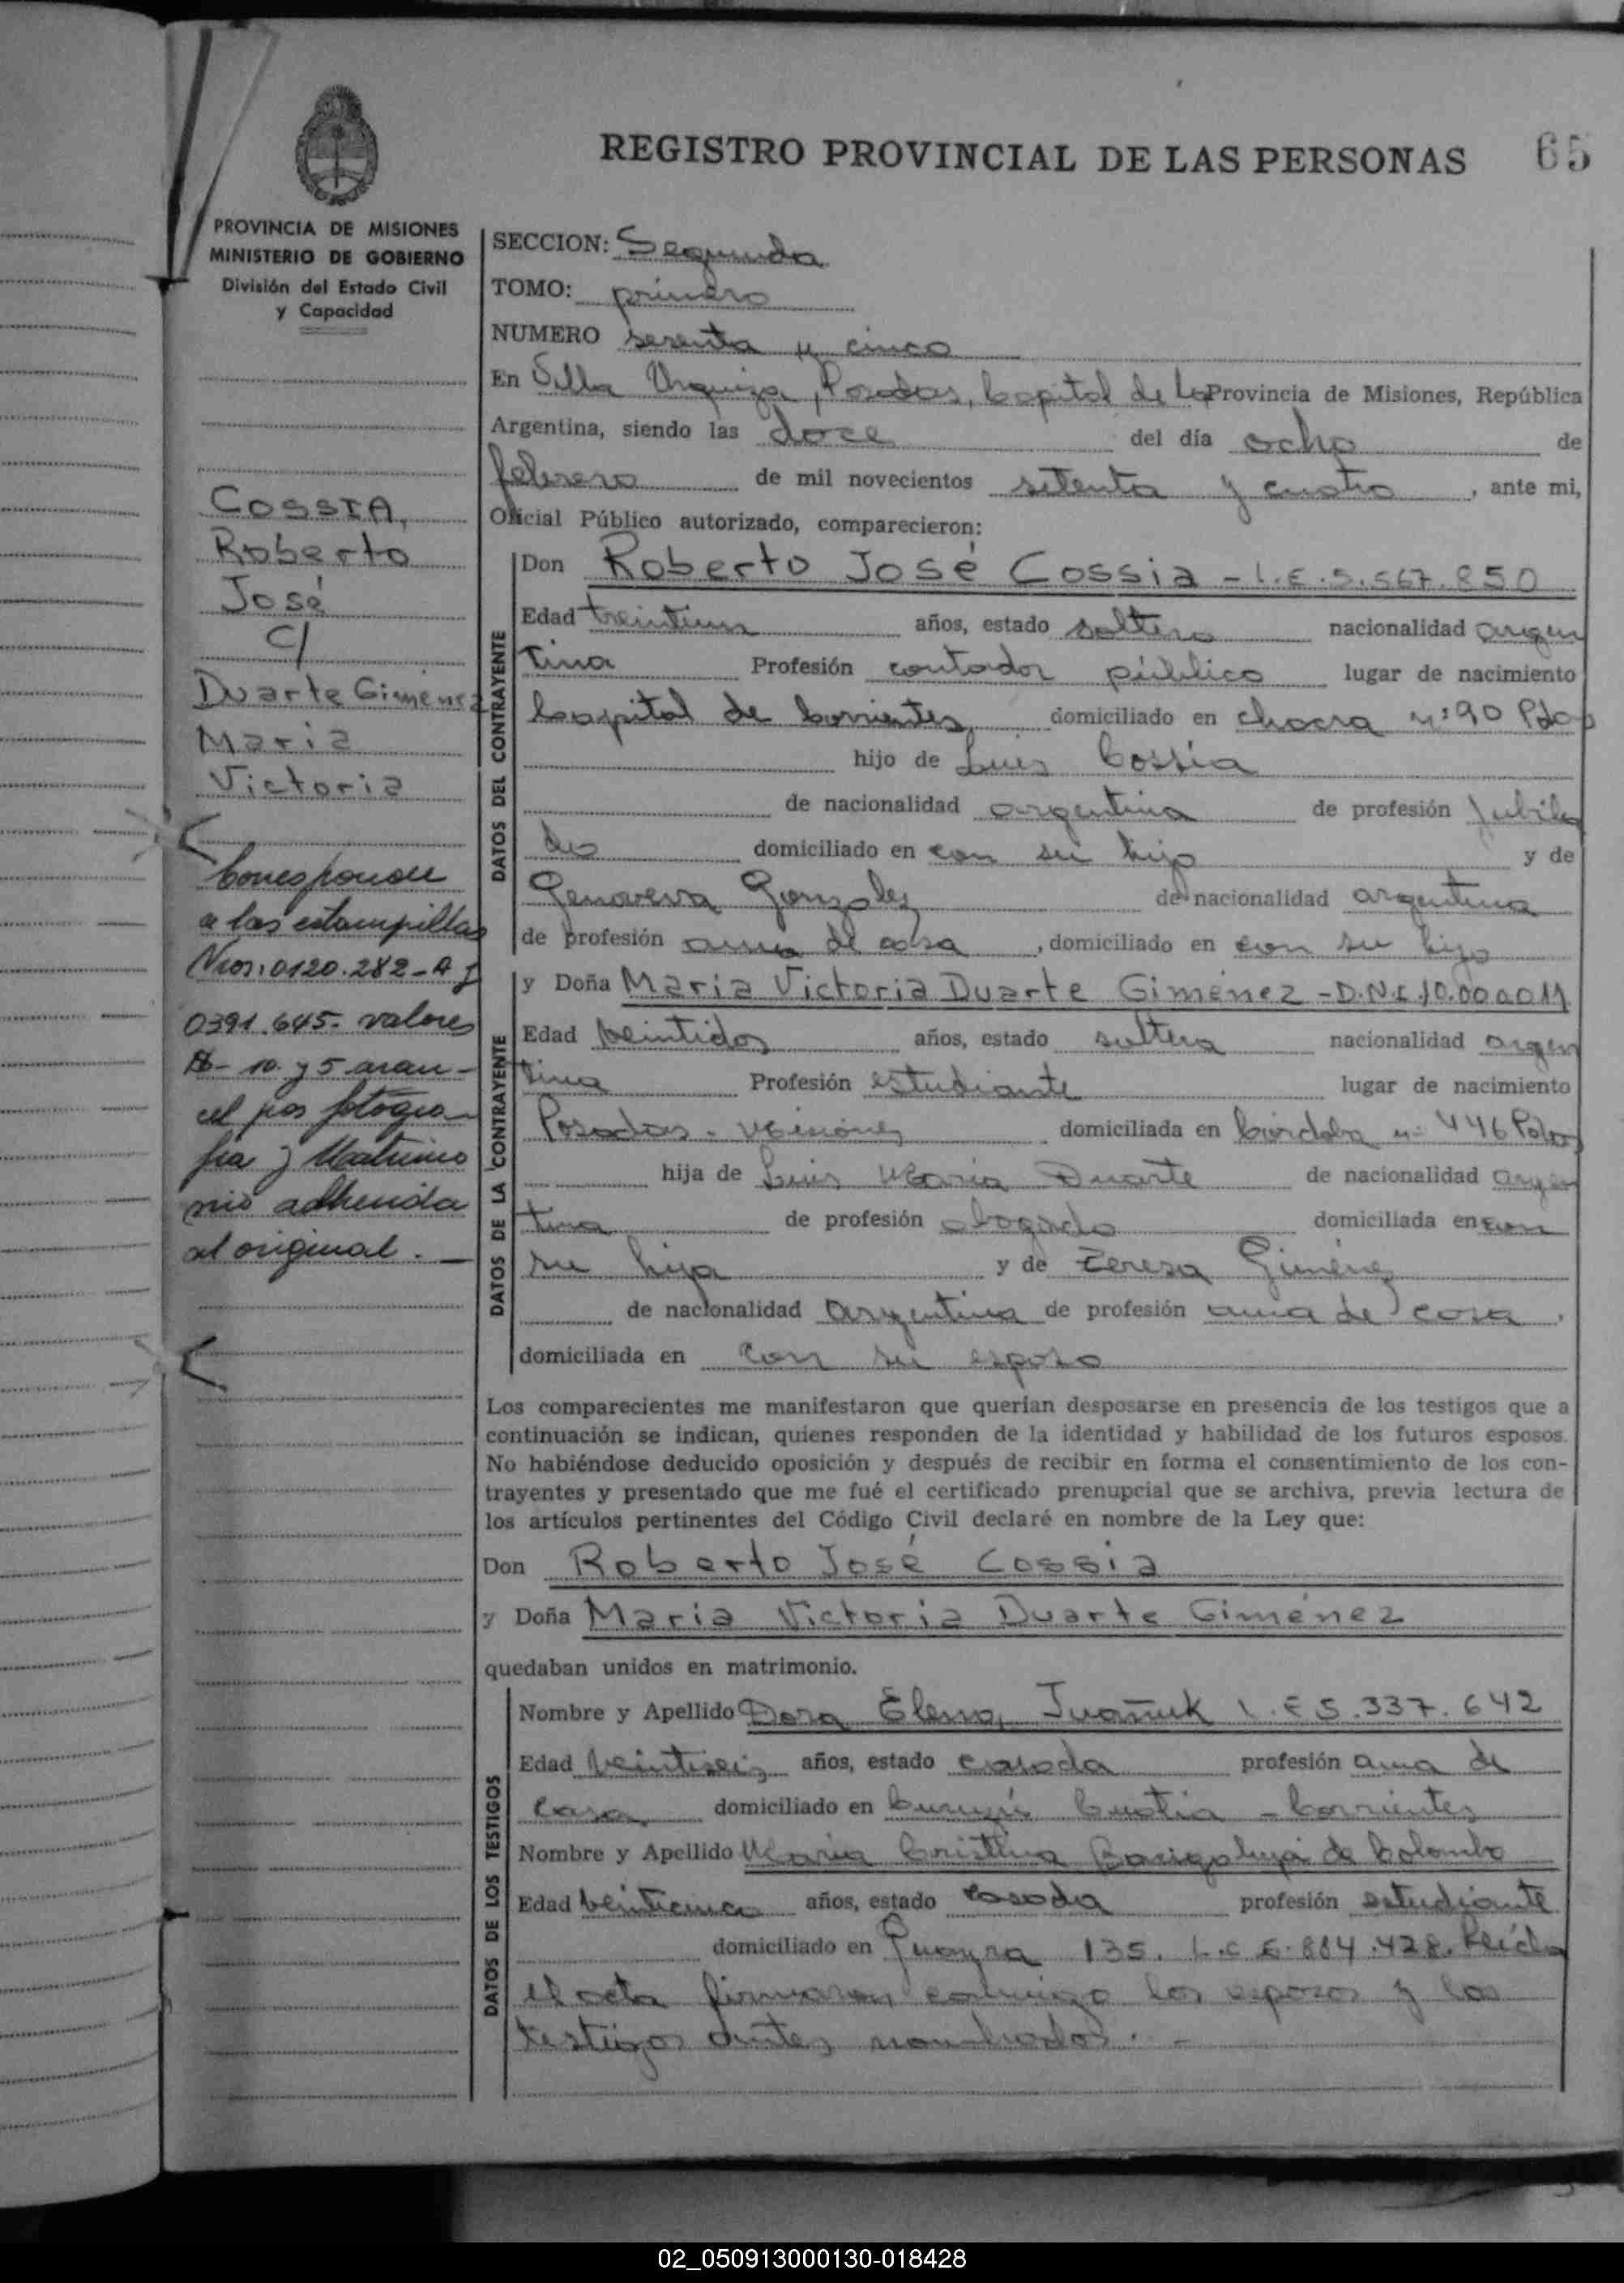 REGISTRO PROVINCIAL DE LAS PERSONAS 65
PROVINCIA DE MISIONES
MINISTERIO DE GOBIERNO
División del Estado Civil
y Capacidad
COSSIA,
Roberto
José
c/
Duarte Gimenez
Maria
Victoria
Corresponde
a las estampillas
Nros: 0120.282-A y
0391.645- valores
10 y 5 aran-
cel por fotogra-
fia y Matrimo
nio adherida
al original.-
SECCION: Segunda
TOMO: primero
NUMERO sesenta y cinco
En Villa Urquiza, Posadas, Capital de la Provincia de Misiones, República
Argentina, siendo las doce del día ocho de
febrero de mil novecientos setenta y cuatro, ante mi,
Oficial Público autorizado, comparecieron:
DATOS DEL CONTRAYENTE
Don Roberto José Cossia - L.E. 5.567.850
Edad treintiun años, estado soltero nacionalidad argen
tina Profesión contador público lugar de nacimiento
Capital de Corrientes domiciliado en chacra nº 90 Pdas
hijo de Luis Cossia
de nacionalidad argentina de profesión Jubila
do domiciliado en con su hijo y de
Genoveva Gonzalez de nacionalidad argentina
de profesión ama de casa, domiciliado en con su hijo
DATOS DE LA CONTRAYENTE
y Doña Maria Victoria Duarte Gimenez - D.N.I. 10.000.011
Edad veintidos años, estado soltera nacionalidad argen
tina Profesión estudiante lugar de nacimiento
Posadas - Misiones domiciliada en Córdoba nº 446 Pdas
hija de Luis Maria Duarte de nacionalidad argen
tina de profesión abogado domiciliada en con
su hija y de Teresa Gimenez
de nacionalidad argentina de profesión ama de casa.
domiciliada en con su esposo
Los comparecientes me manifestaron que querían desposarse en presencia de los testigos que a
continuación se indican, quienes responden de la identidad y habilidad de los futuros esposos.
No habiéndose deducido oposición y después de recibir en forma el consentimiento de los con-
trayentes y presentado que me fué el certificado prenupcial que se archiva, previa lectura de
los artículos pertinentes del Código Civil declaré en nombre de la Ley que:
Don Roberto José Cossia
y Doña Maria Victoria Duarte Gimenez
quedaban unidos en matrimonio.
DATOS DE LOS TESTIGOS
Nombre y Apellido Dora Elena 5.337.642
Edad veintiseis años, estado casada profesión ama de
casa domiciliado en Curuzú Cuatia - Corrientes
Nombre y Apellido Maria Cristina de Colombo
Edad veinticinco años, estado casada profesión estudiante
domiciliado en Guayra 135. L.C. 6.884.428. Leída
el acta firmaron conmigo los esposos y los
testigos antes nombrados. -
02_050913000130-018428